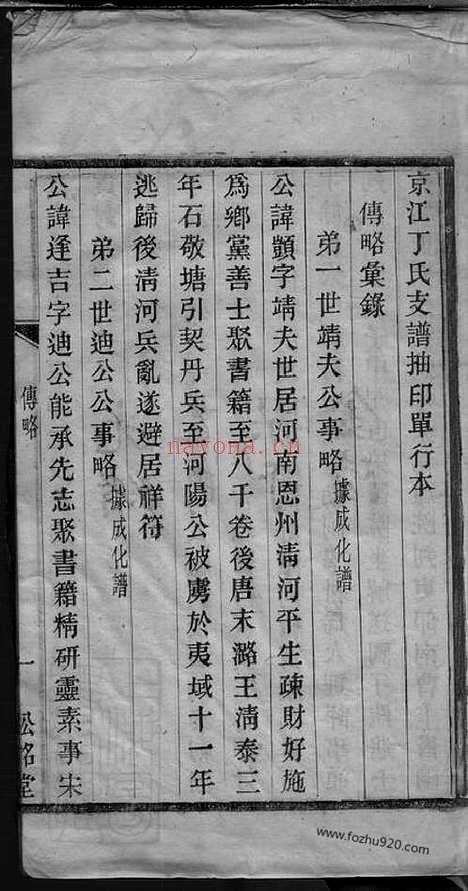 京江丁氏支譜抽印單行本
傳略彙錄
弟一世靖夫公事略據成化譜
公諱顗字靖夫世居河南恩州淸河平生疎財好施
爲鄉黨善士聚書籍至八千卷後唐末潞王淸泰三
年石敬塘引契丹兵至河陽公被虜於夷域十一年
逃歸後淸河兵亂遂避居祥符
弟二世迪公公事略據成化譜
公諱逢吉字迪公能承先志聚書籍精硏靈素事宋
傳略
一
松銘堂
nayona.cn
www.fozhu920.com